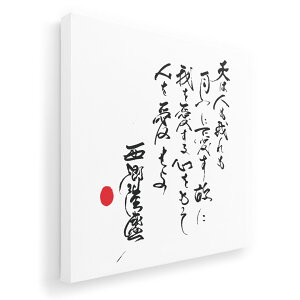 天は人も我れも
同一に愛す 故に
我を愛する心をもって
人を愛せよ
西郷隆盛